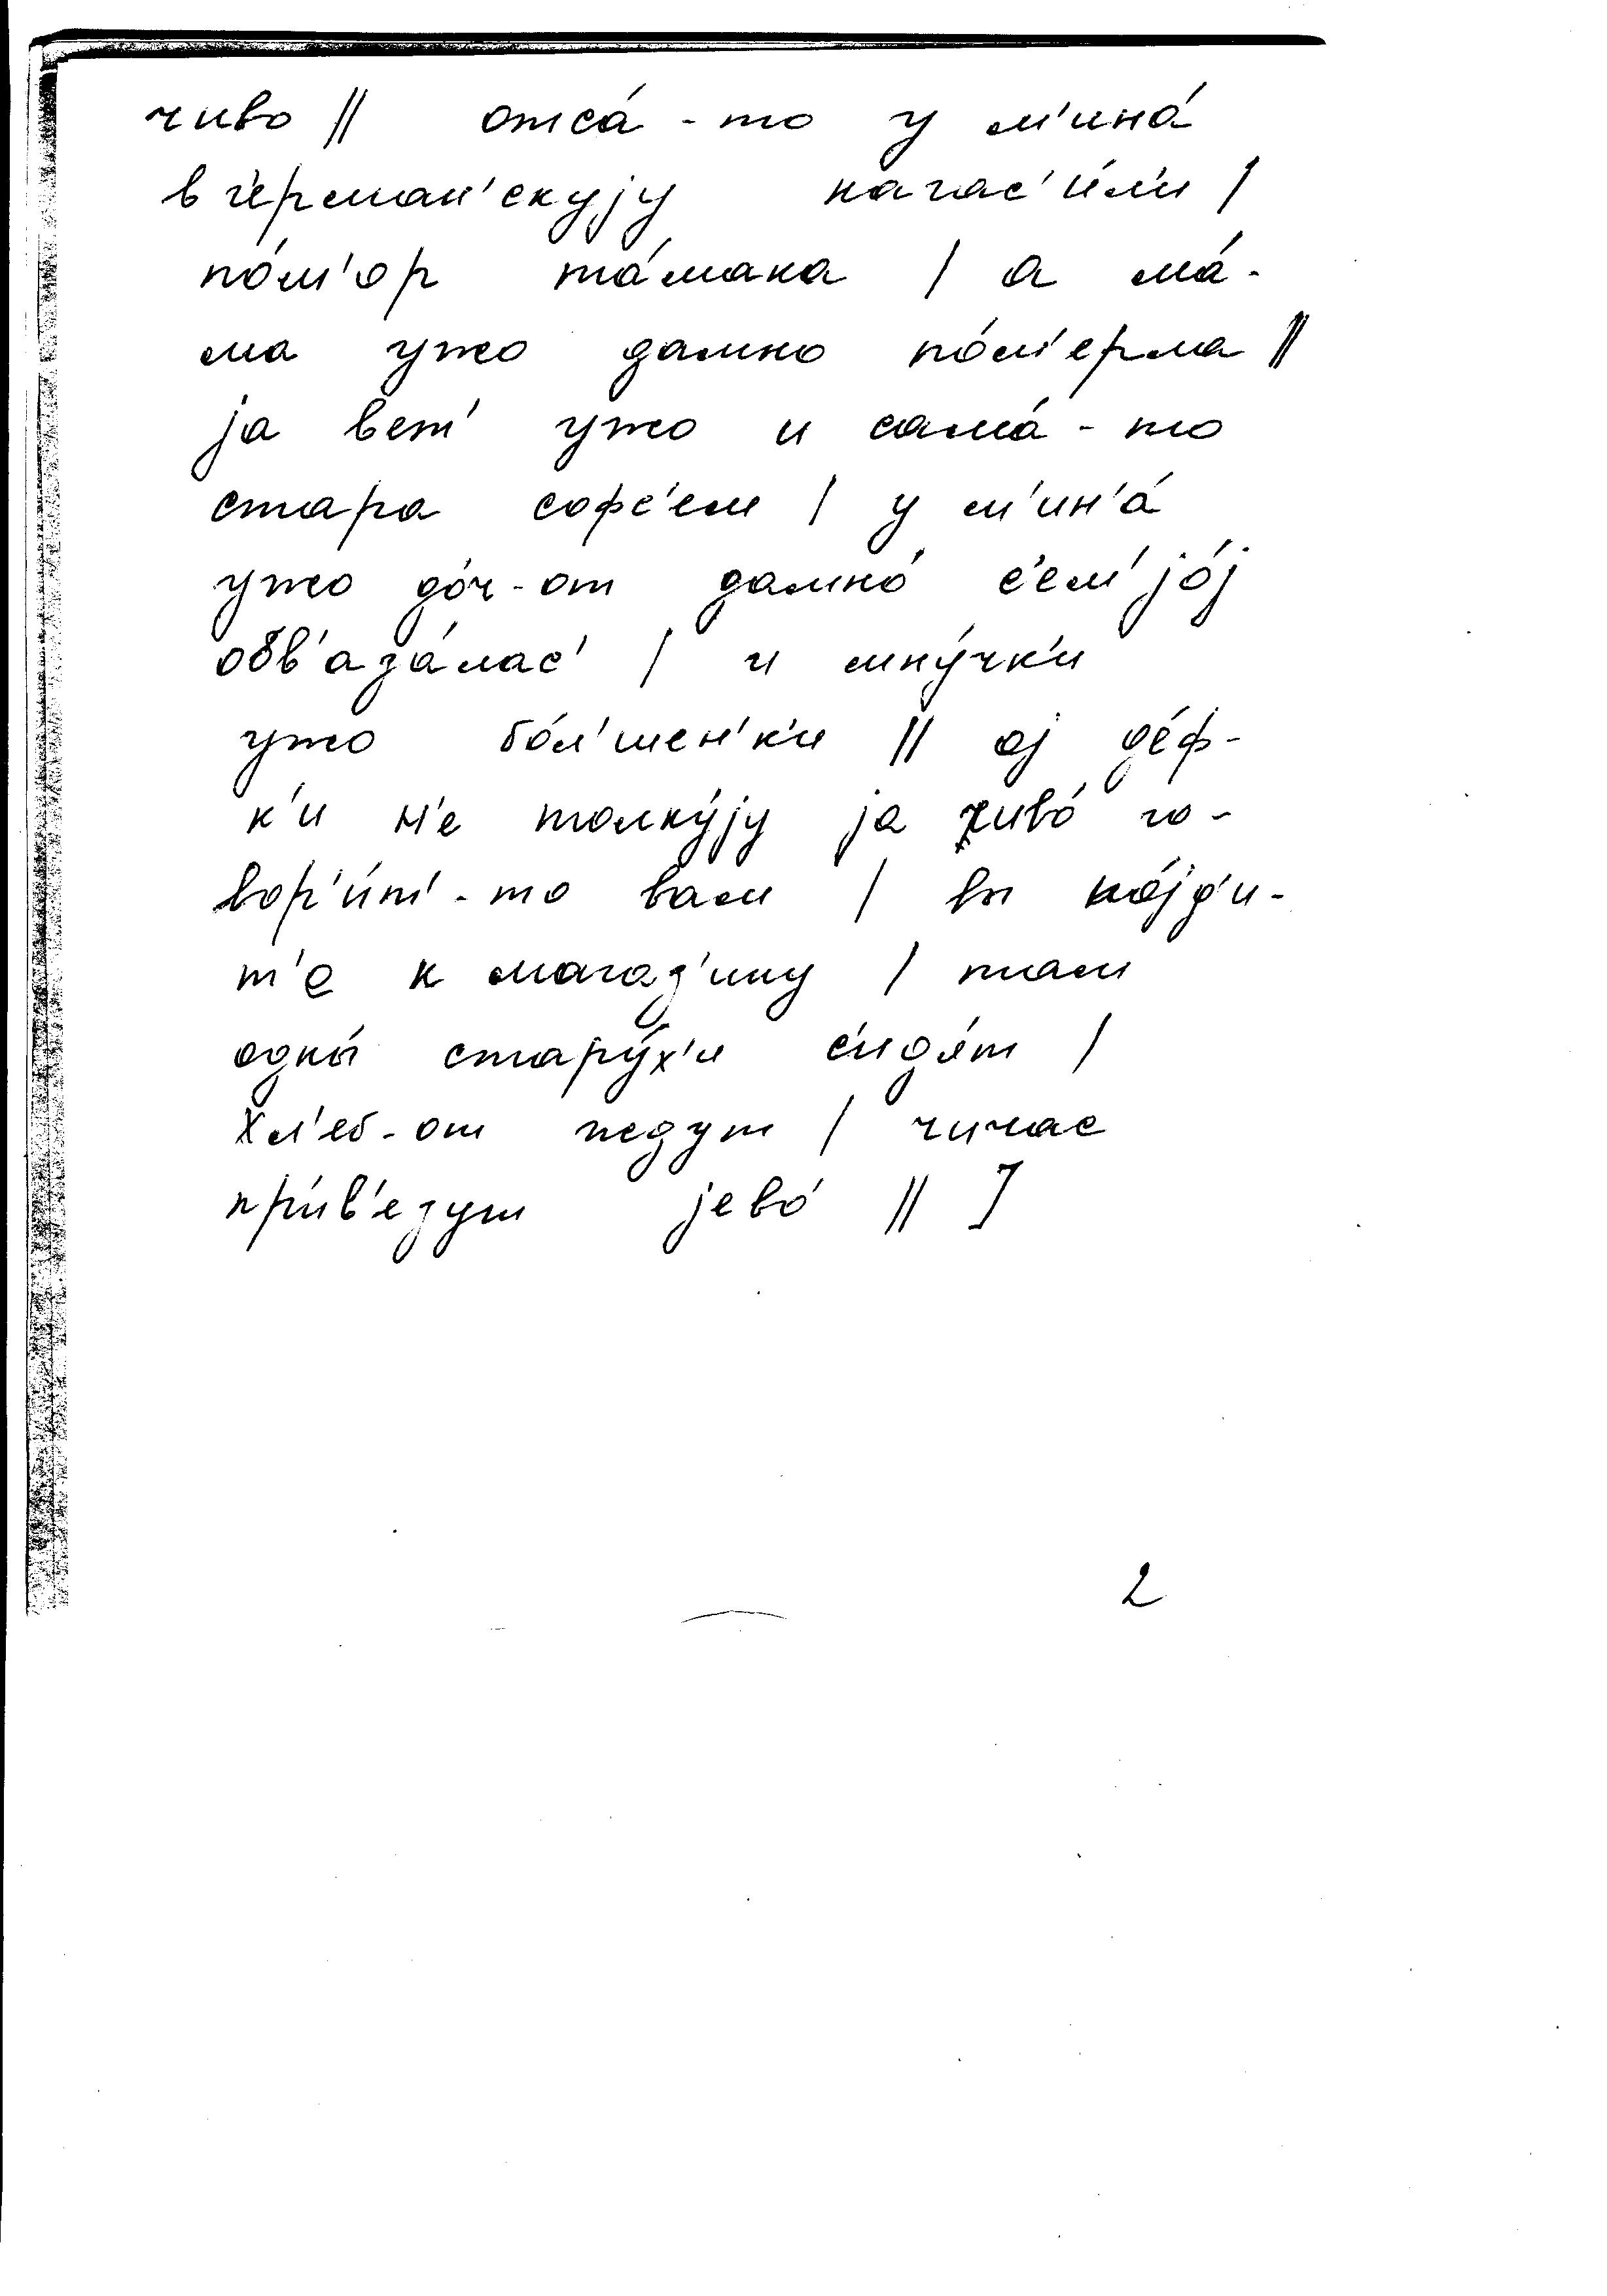 чиво || отса́-то у м'ина́
в г'ерман'скуjу нагас'и́л'и |
по́м'ор та́мака | а ма́-
ма ужо дамно по́м'ерла ||
jа вет' ужо и сама́-то
стара софс'ем | у м'ин'а́
ужо до́ч-от дамно́ с'ем'jо́j
обв'аза́лас' | и мну́чк'и
ужо бо́л'шен'к'и || оj де́ф-
к'и н'е толку́jу jа чиво́ го-
вор'и́т'-то вам | вы по́jд'и-
т'е к магаз'ину | там
одны́ стару́х'и с'ид'а́т |
хл'еб-от жедут | чичас
при́в'езут jево́ || ]
2